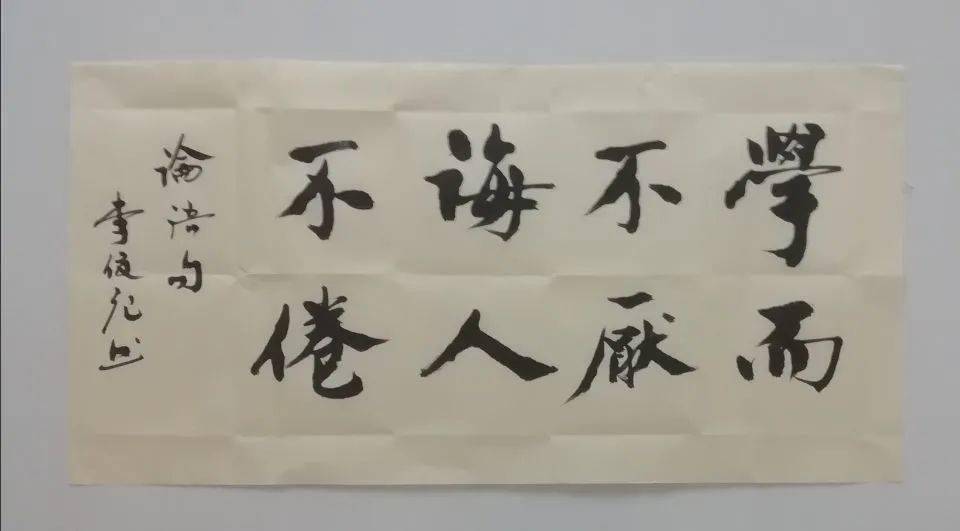 學而
不厭
誨人
不倦
論語句
李俊